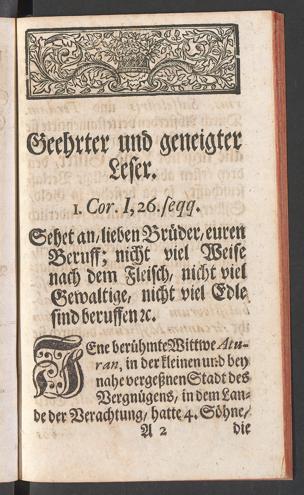 Geehrter und geneigter
Leser.
1. Cor. I, 26. seqq.
Sehet an, lieben Brüder, euren
Beruff; nicht viel Weise
nach dem Fleisch, nicht viel
Gewaltige, nicht viel Edle
sind beruffen ꝛc.
JEne berühmte Wittwe Atu-
ran, in der kleinen und bey
nahe vergeßnen Stadt des
Vergnügens, in dem Lan-
de der Verachtung, hatte 4. Söhne,
A 2 die